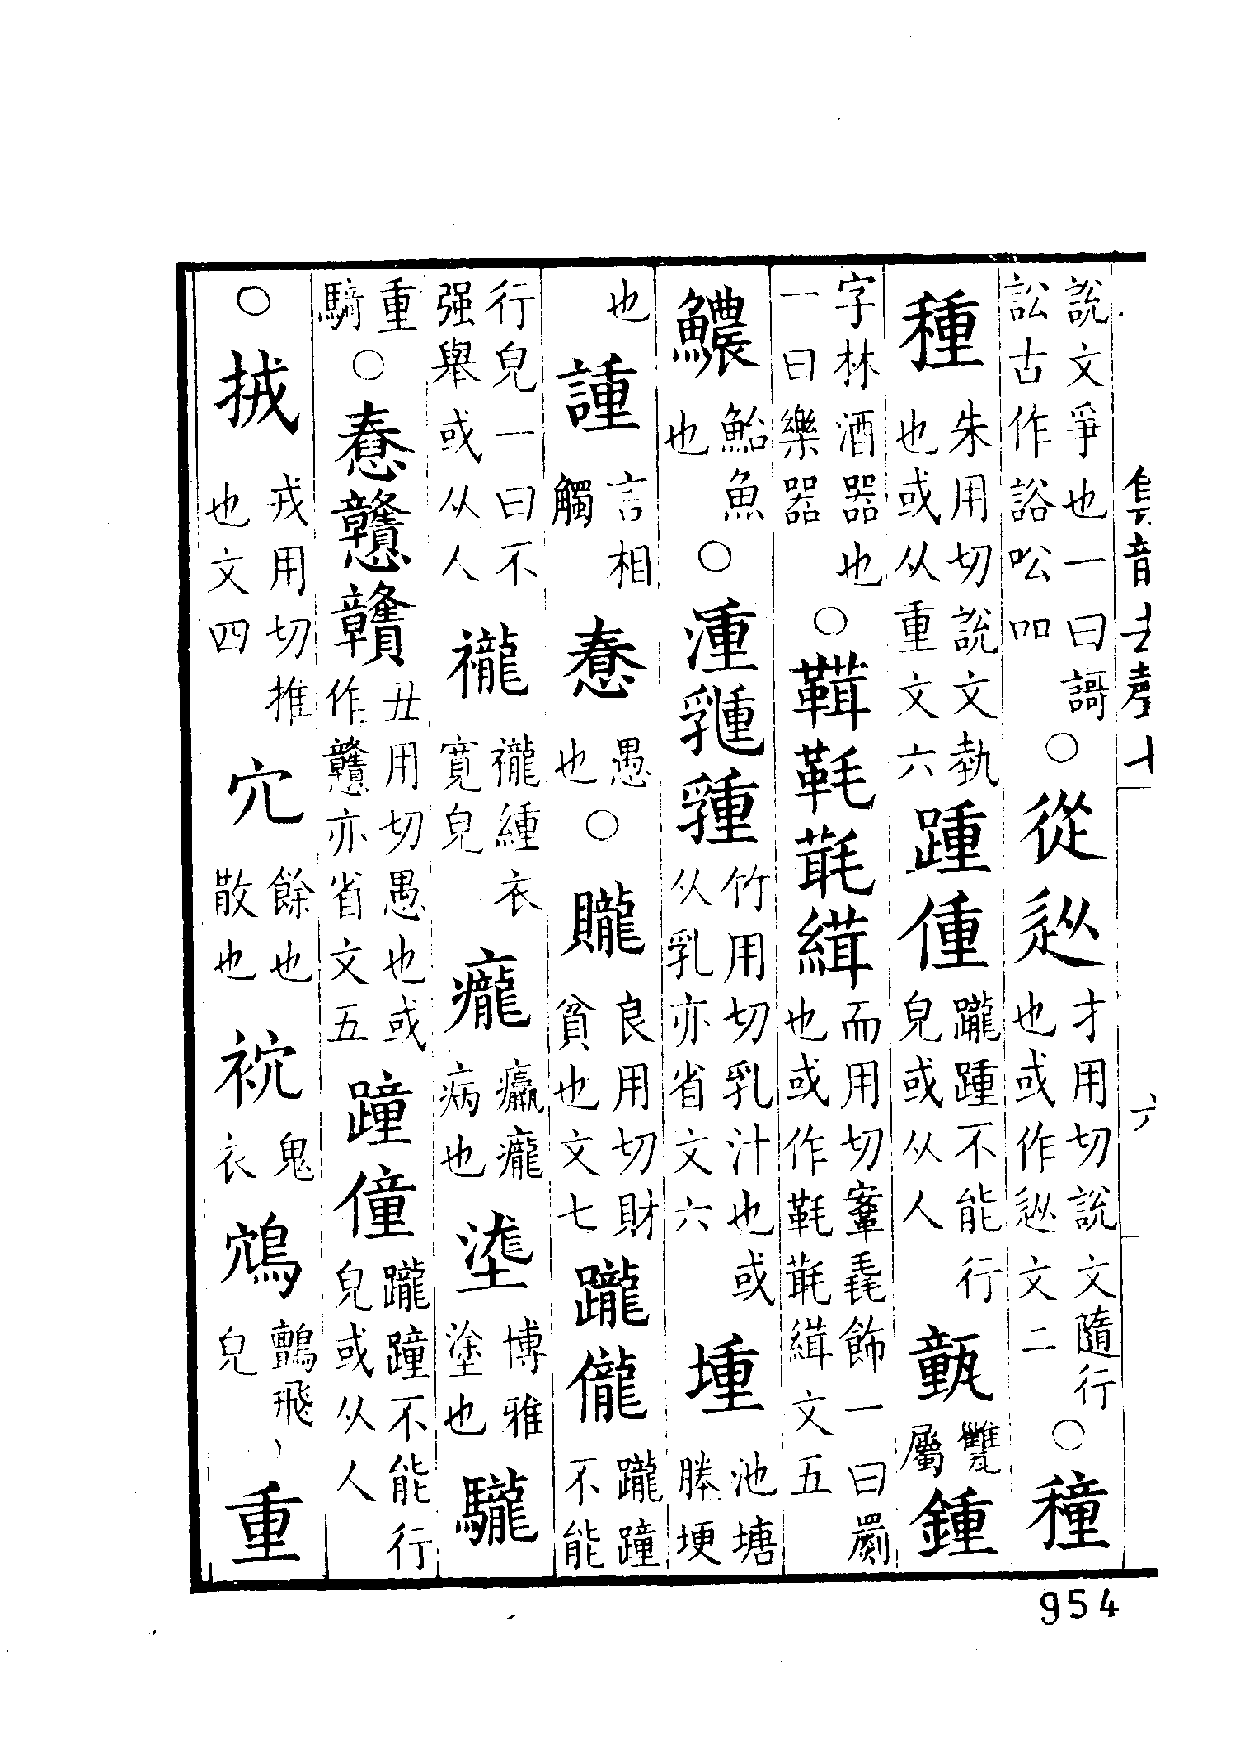 集韻去聲七
六
說文爭也一曰謌訟古作䛦㕬吅○從𨑢才用切說文隨行也或作𨑢文二○穜
種朱用切說文埶也或从重文六踵偅躘踵不能行皃或从人甀甖屬鍾
字林酒器也一曰樂器○鞋而用切毳飾一曰罽也或作文五
鱶鮐魚也○湩竹用切乳汁也或从乳亦省文六堹池塘塍埂
也諥言相觸惷愚也○贚良用切財貧也文七躘儱躘蹱不能
行皃一曰不强舉或从人襱襱緟衣寬皃癃癃病也𡏡博雅塗也驡
重騎○惷戇贛丑用切愚也或作戇亦省文五蹱僮躘蹱不能行皃或从人
○拔戎用切推也文四宂餘也散也䘬鬼衣鴧鸇飛皃重
954